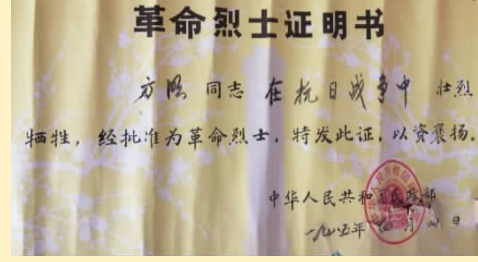 革命烈士证明书
方 同志 在抗日战争中 壮烈
牺牲，经批准为革命烈士，特发此证，以资褒扬。
中华人民共和国民政部
一九 五年 月 日